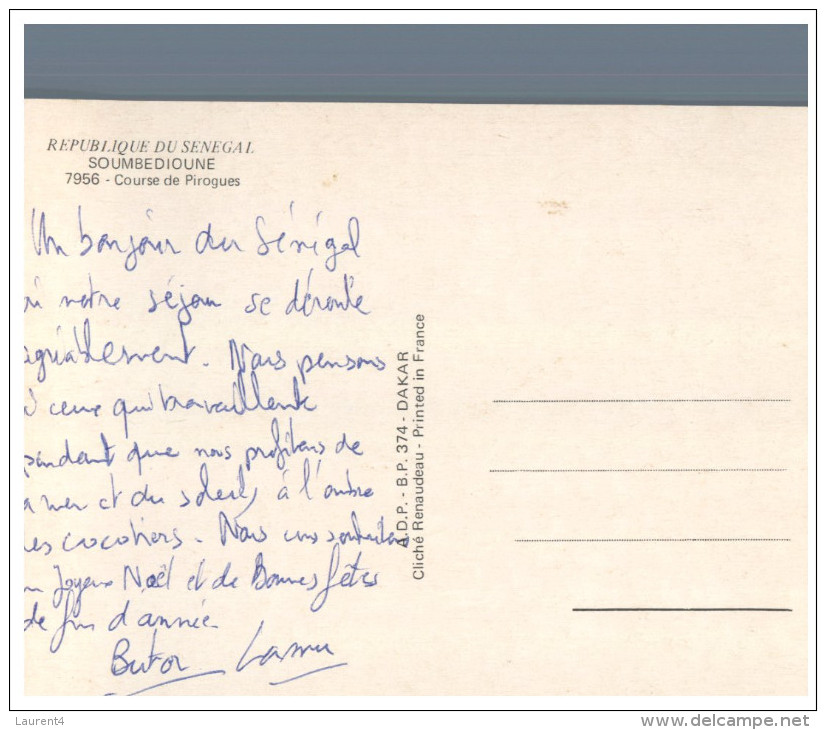 REPUBLIQUE DU SENEGAL
SOUMBEDIOUNE
7956 - Course de Pirogues
Un bonjour du Sénégal
où notre séjour se déroule
agréablement. Nous pensons
à ceux qui travaillent
pendant que nous profitons de
la mer et du soleil, à l'ombre
des cocotiers. Nous vous souhaitons
un Joyeux Noël et de Bonnes fêtes
de fin d'année.
A.D.P. - B.P. 374 - DAKAR
Cliché Renaudeau - Printed in France
Laurent4
www.delcampe.net